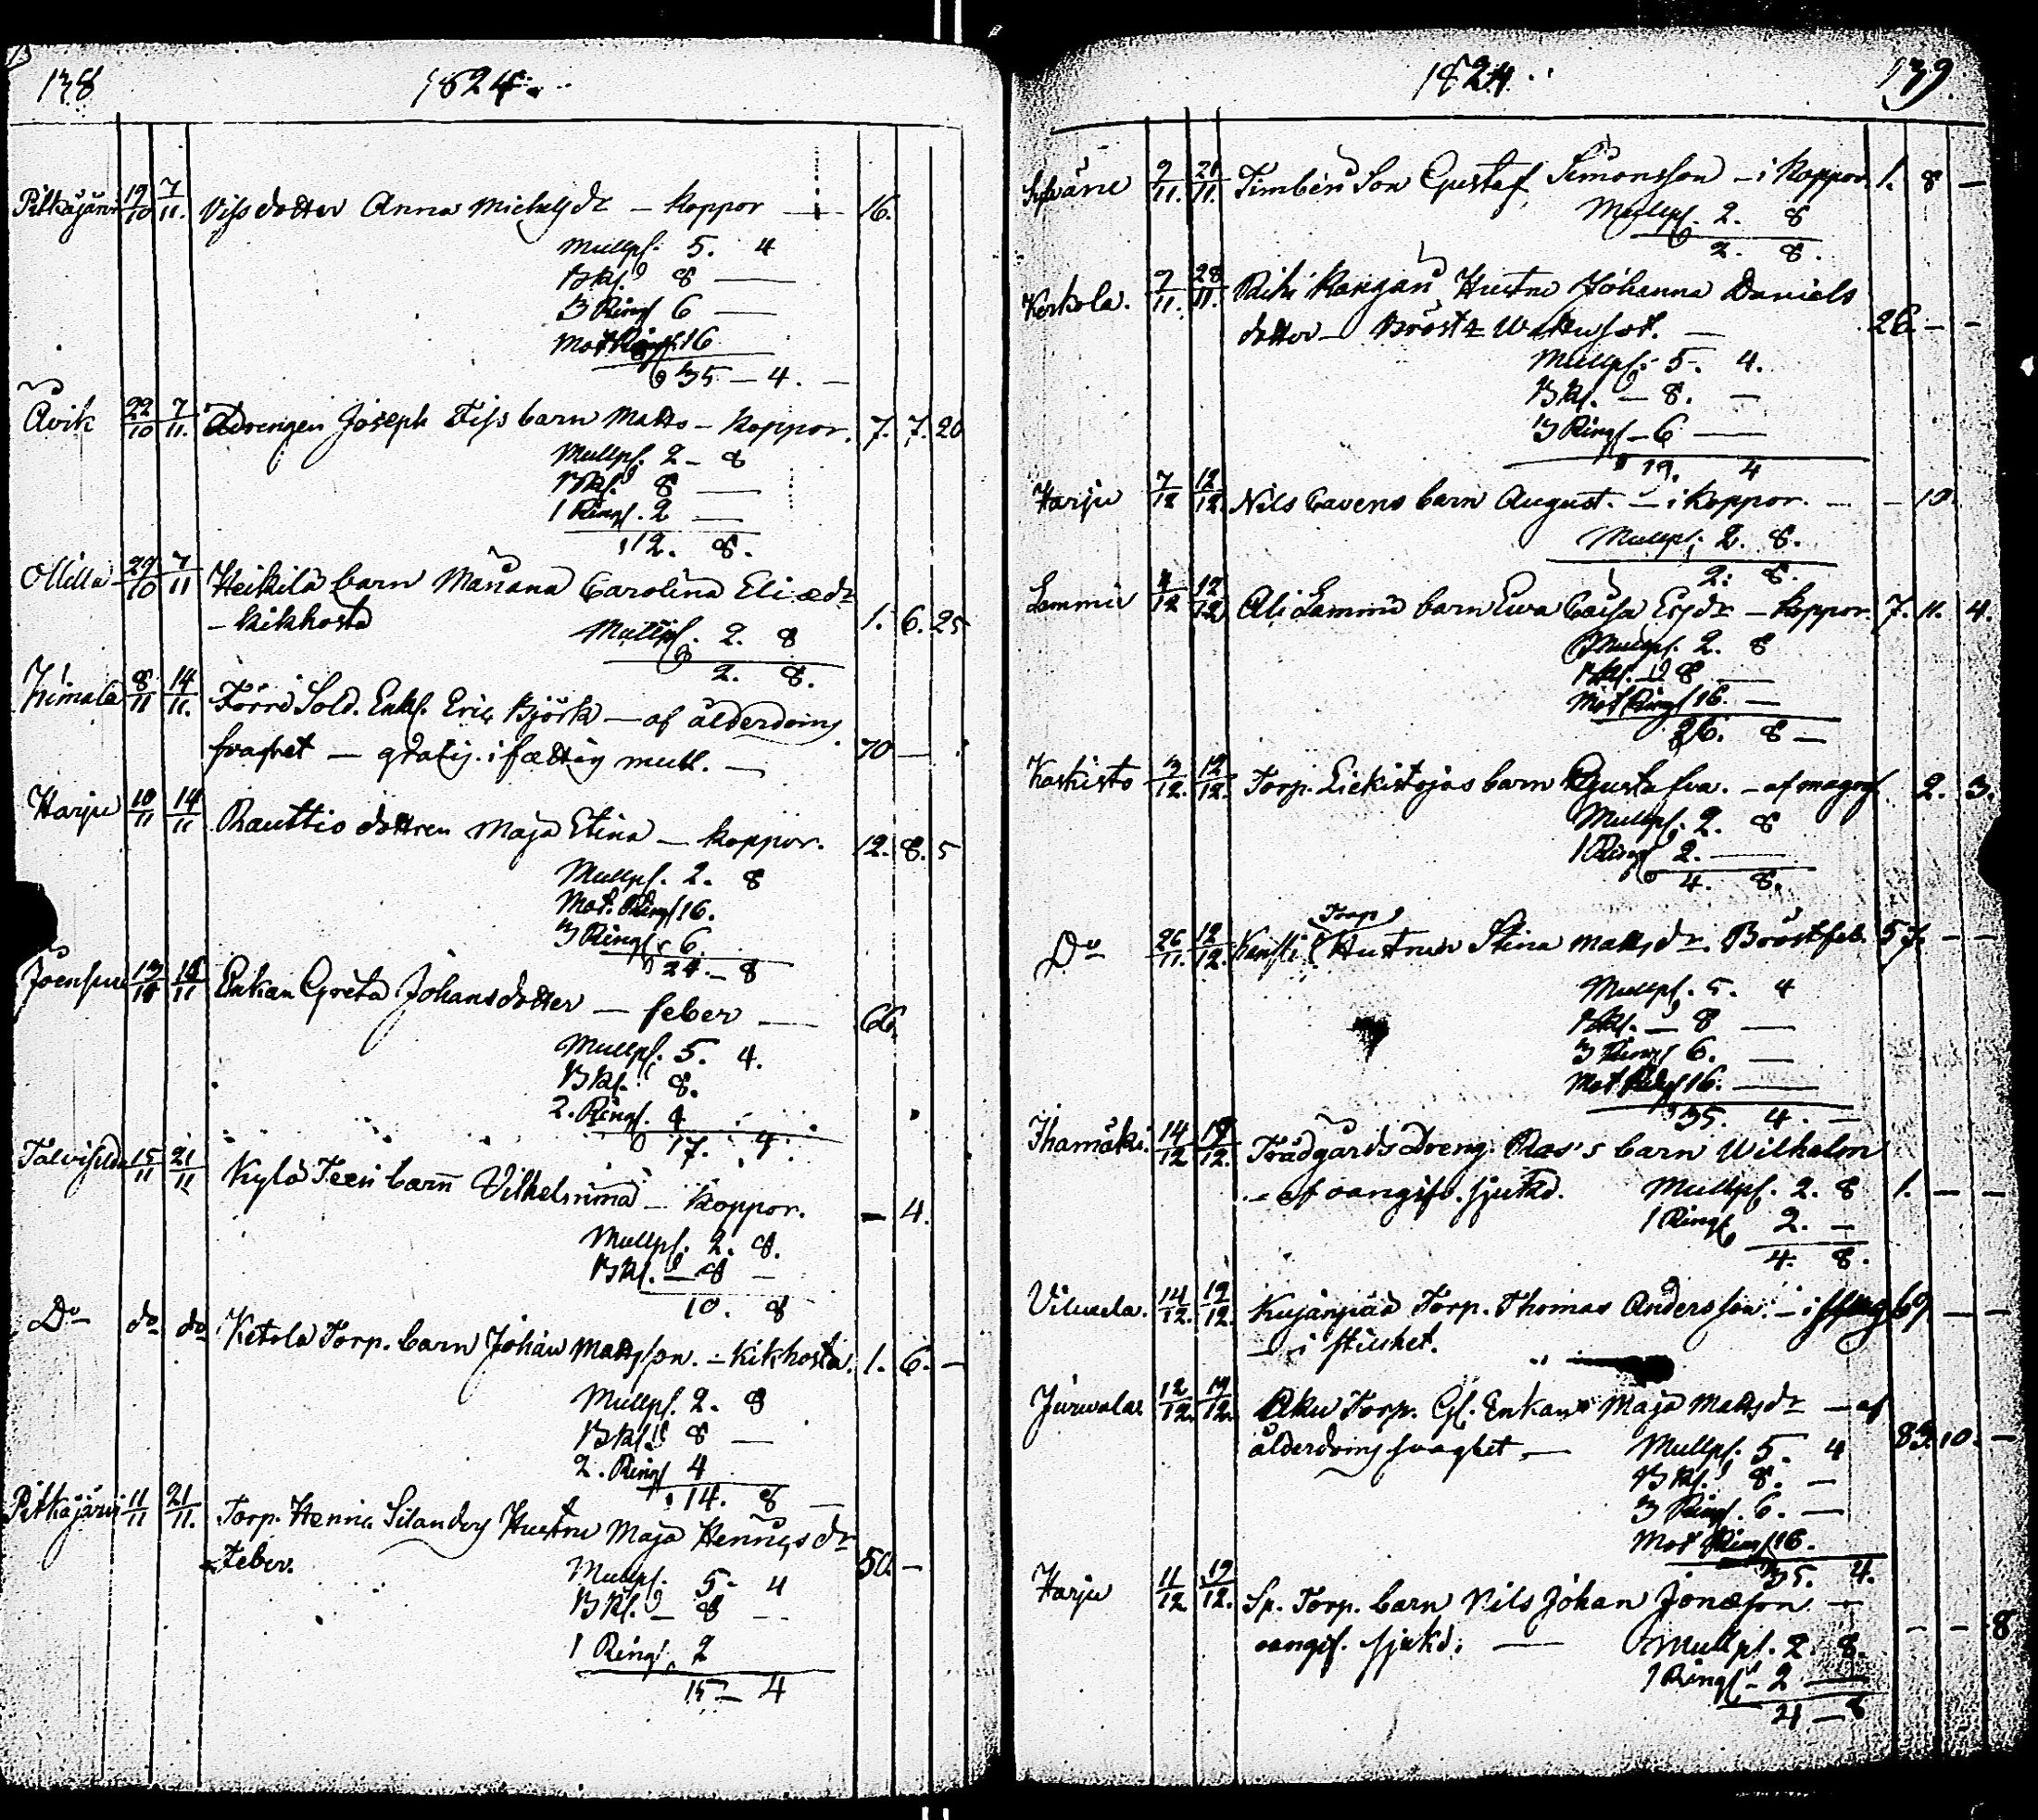 138 1824.
Pitkäjärvi 19/10 7/11. Viss dotter Anna Michelsdr — Koppor — 16.
Mullpf. 5. 4
Bkl. 8 —
3 Ringf 6 —
Mot Ringf. 16
35 — 4. —
Åvik 22/10 7/11. Drengen Joseph Fiss barn Matts — Koppor. 7. 7. 20
Mullpf. 2 — 8
Bkl. 8 —
1 Ringf. 2 —
12. 8.
Ollila 29/10 7/11 Heikilä barn Mariana Carolina Eliædr
— kikhosta 1. 6. 25
Mullpf. 2. 8
2. 8.
8/11 14/11. Förre Sold. Enkl. Eric Björk — af ålderdoms
svaghet — gratis i fattig mull. — 70 —
Harju 10/11 14/11 Rauttio dottren Maja Stina — Koppor. 12. 8. 5
Mullpf. 2. 8
Mot. Ringf 16.
3 Ringf. 6.
24. — 8
Joensuu 14/11 Enkan Greta Johansdotter — feber — 66
Mullpf. 5. 4.
Bkl. 8.
2. Ringf. 4
17. 4.
Talvisilda 15/11 21/11 Kylä Teeri barn Vilhelmina — Koppor. — 4.
Mullpf. 2. 8.
Bkl. — 8 —
10. 8
Do do do Ketola Torp. barn Johan Mattsson. — Kikhosta. 1. 6. —
Mullpf. 2. 8
Bkl. 8 —
2. Ringf 4
14. 8 —
Pitkäjärvi 11/11 21/11. Torp. Henric Silanders Hustru Maja Henricsdr
— Feber. 50. —
Mullpf. 5 — 4
Bkl. — 8 —
1 Ringf. 2
15 — 4
1824. 139.
9/11. 21/11. Timberi Son Gustaf Simonsson — i Koppor. 1. 8 —
Mullpf. 2. 8
2. 8.
Kerkola. 9/11. 28/11. Hustru Johanna Daniels
dotter — Bröst & Wattusot. — 26. — —
Mullpf. 5. 4.
Bkl. — 8. —
3 Ringf — 6 —
19. 4
Harju 7/12 12/12. Nils Cavens barn August. — i Koppor. — — 10.
Mullpf. 2. 8.
2. 8.
Lammi 4/12 12/12 Ali Lammi barn Ewa Caisa Ersdr — Koppor. 7. 11. 4.
Mullpf. 2. 8
Bkl. — 8 —
Mot Ringf 16. —
26. 8 —
Koskisto 3/12. 12/12. Torp. Liekistojas barn Gustafva. — af magref 2. 3.
Mullpf. 2. 8
1 Ringf 2. —
4. 8.
Torp
Do 26/11. 12/12. Hustrun Stina Mattsdr. Bröstfeb. 57. — —
Mullpf. 5. 4
Bkl. — 8 —
3 Ringf 6. —
Mot Ringf 16. —
35. 4. —
Ihamäki. 14/12 19/12. Trädgårds Dreng. Ras's barn Wilhelm
— af oangifv. sjukd. 1. — —
Mullpf. 2. 8
1 Ringf 2. —
4. 8.
Vilunla. 14/12. 19/12. Kujanpää Torp. Thomas Andersson. — 69 — —
— i stilhet.
Jurvala 12/12. 19/12. Aku Torp. Gl. Enkan Maja Mattsdr — af
ålderdoms svaghet. — 83. 10. —
Mullpf. 5 4
Bkl. 8. —
3 Ringf. 6. —
Mot Ringf 16.
35. 4.
Harju 11/12 19/12. Sp. Torp. barn Nils Johan Jonæson —
oangif. sjukd. — — — 8
Mullpf. 2. 8.
1 Ringf — 2 —
4 — 8